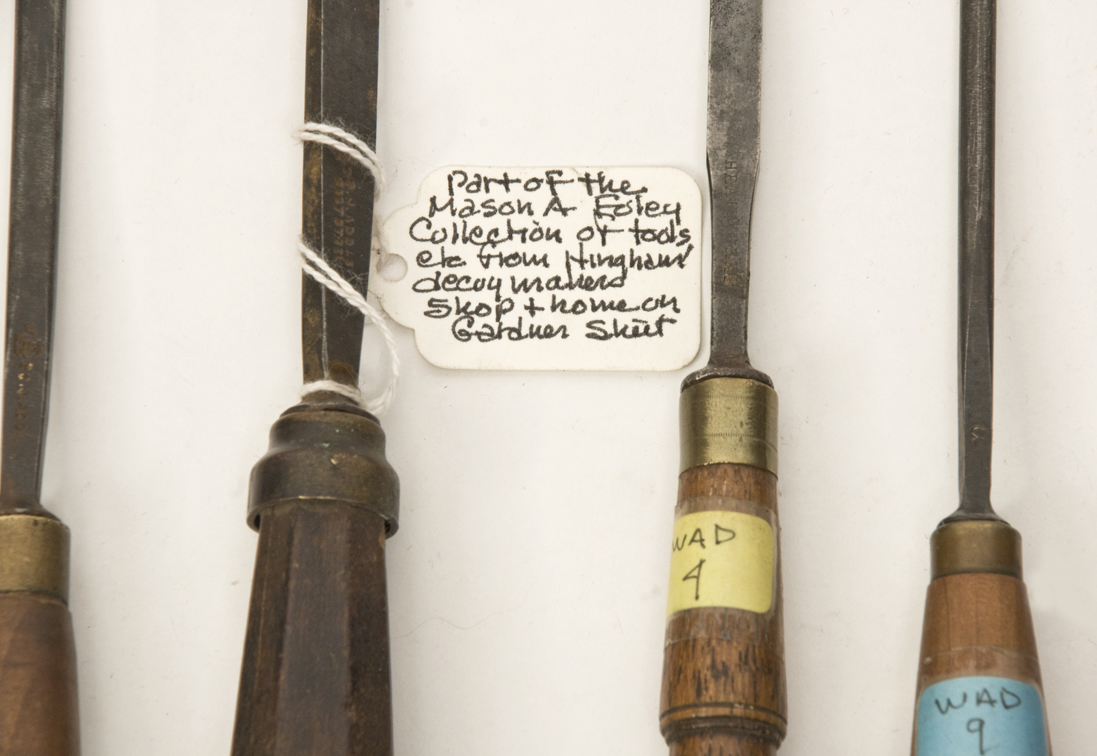 Part of the
Mason A Foley
Collection of tools
etc from Hingham
decoy makers
Shop + home on
Gardner Street
WAD
4
WAD
9